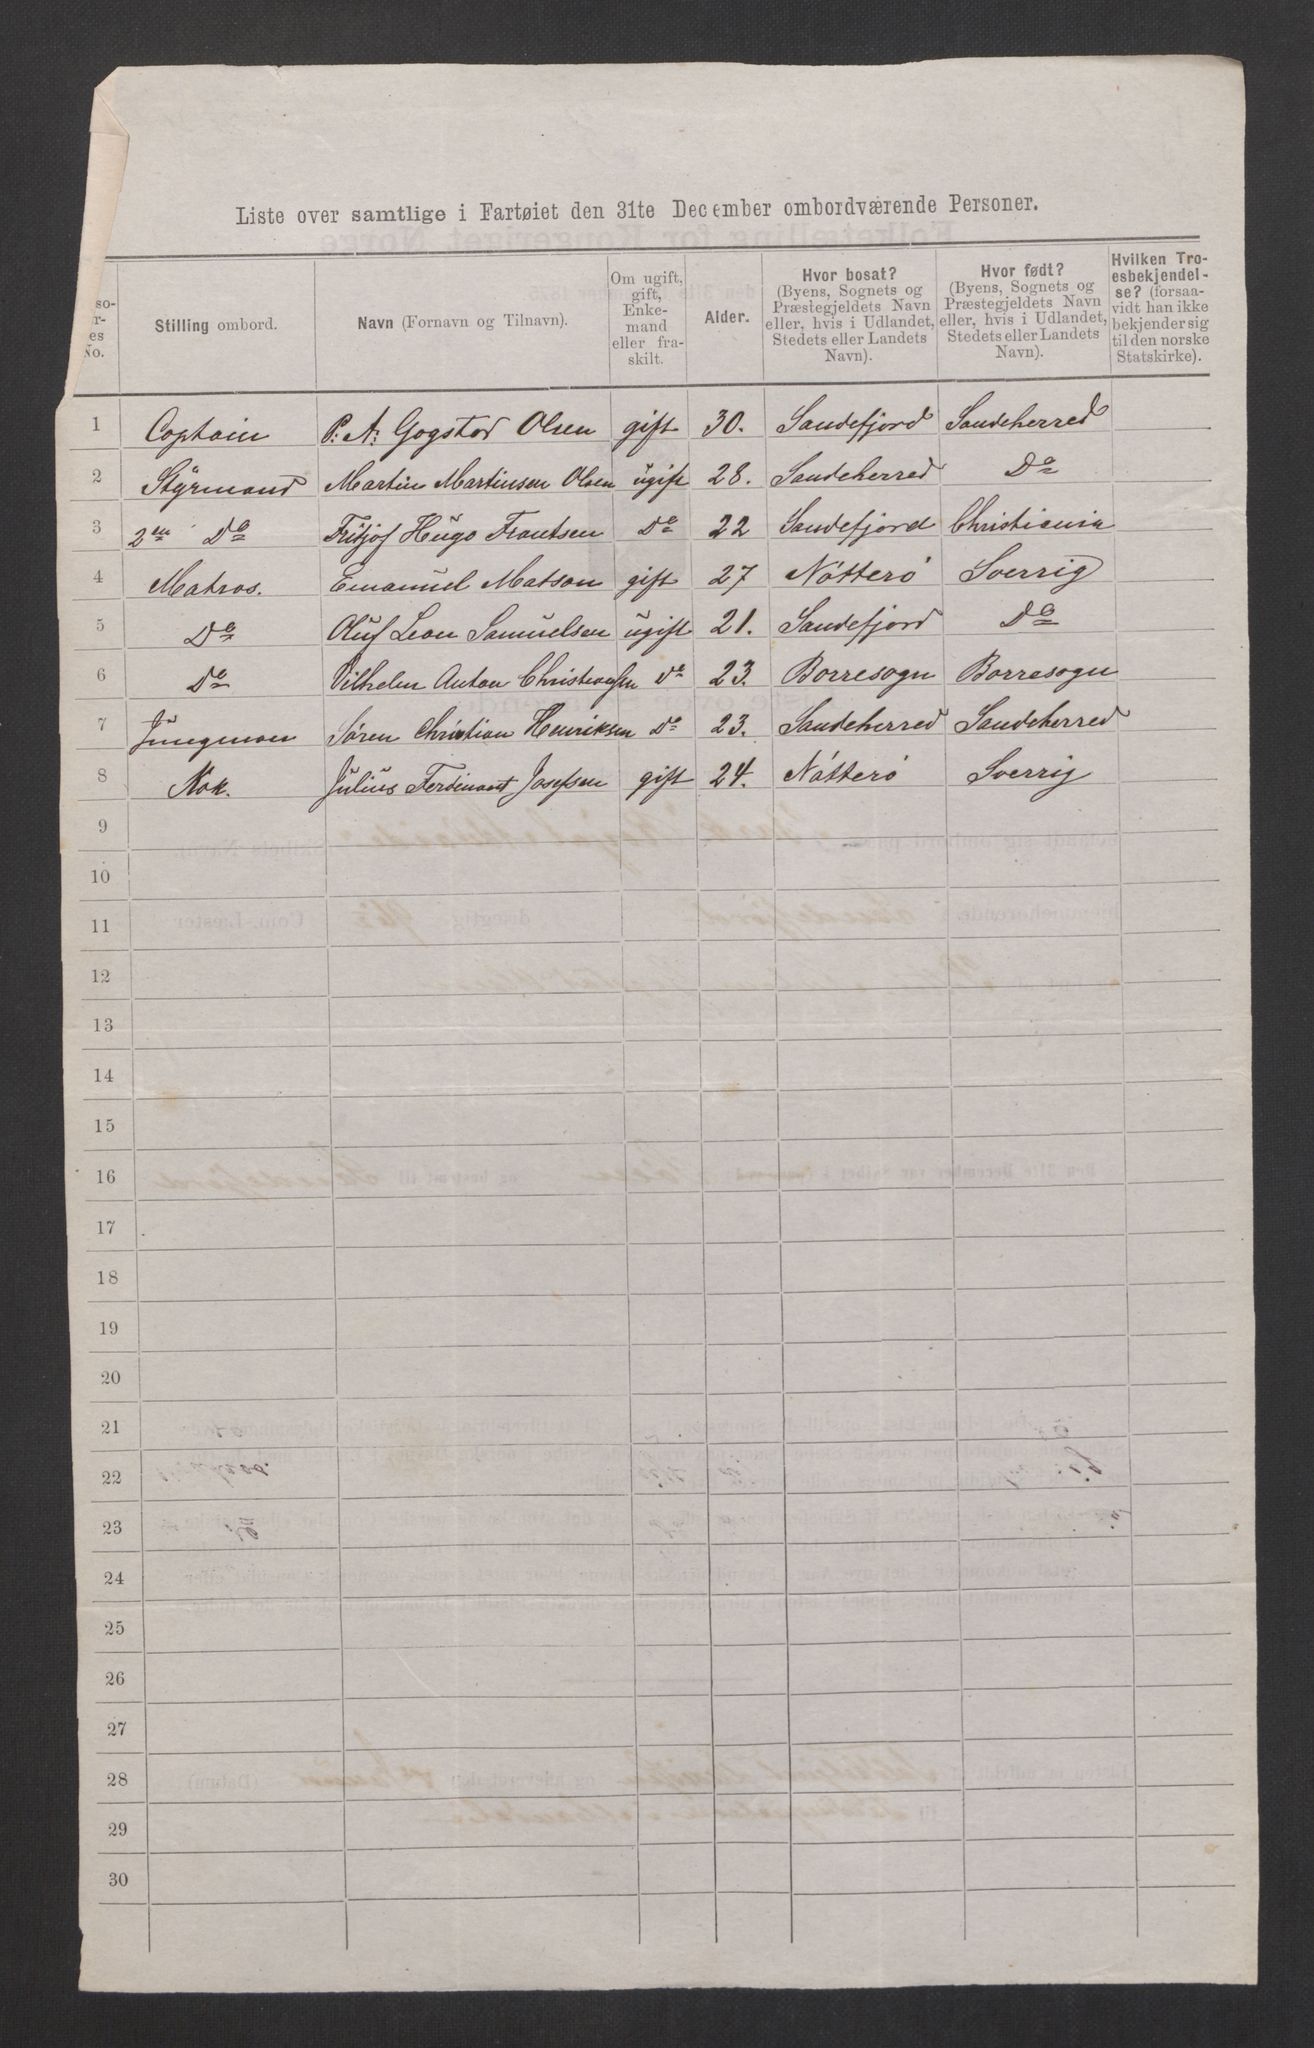 Liste over samtlige i Fartøiet den 31te December ombordværende Personer.
so-
r-
es
No.
Stilling ombord.
Navn (Fornavn og Tilnavn).
Om ugift,
gift,
Enke-
mand
eller fra-
skilt.
Alder.
Hvor bosat?
(Byens, Sognets og
Præstegjeldets Navn
eller, hvis i Udlandet,
Stedets eller Landets
Navn).
Hvor født?
(Byens, Sognets og
Præstegjeldets Navn
eller, hvis i Udlandet,
Stedets eller Landets
Navn).
Hvilken Tro-
esbekjendel-
se? (forsaa-
vidt han ikke
bekjender sig
til den norske
Statskirke).
1 Captain P. A: Gogstad Olsen gift 30. Sandefjord Sandeherred
2 Styrmand Martin Martinsen Olsen ugift 28. Sandeherred Do
3 2en Do Fritjof Hugo Frantsen Do 22 Sandefjord Christiania
4 Matros. Emanuel Matson gift 27 Nötterö Sverrig
5 Do Oluf Leon Samuelsen ugift 21. Sandefjord Do
6 Do Vilhelm Anton Christiansen Do 23. Borresogn Borresogn
7 Jungman Sören Christian Henriksen Do 23. Sandeherred Sandeherred
8 Kok. Julius Ferdinant Josefsen gift 24. Nötterö Sverrig
9
10
11
12
13
14
15
16
17
18
19
20
21
22
23
24
25
26
27
28
29
30